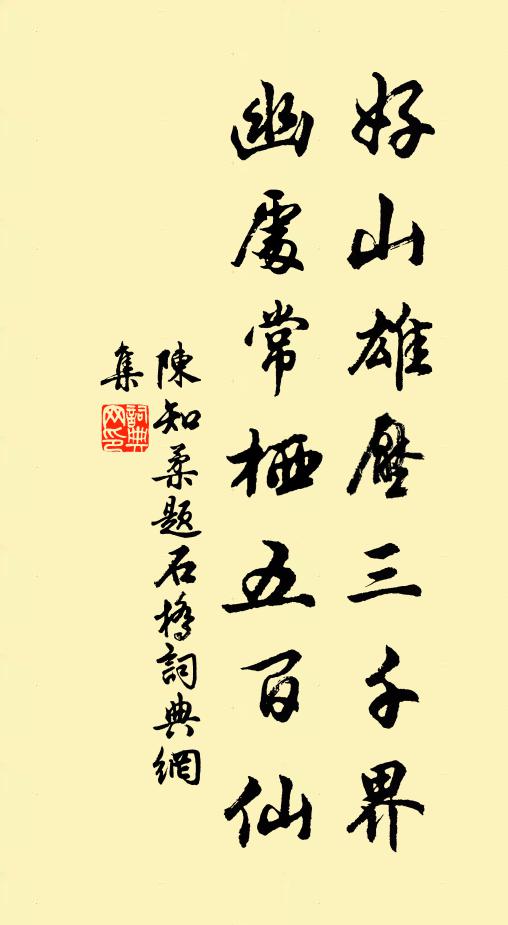 好山雄壓三千界
幽處常栖五百仙
陳知柔題石橋詞典網
集
詞典網印